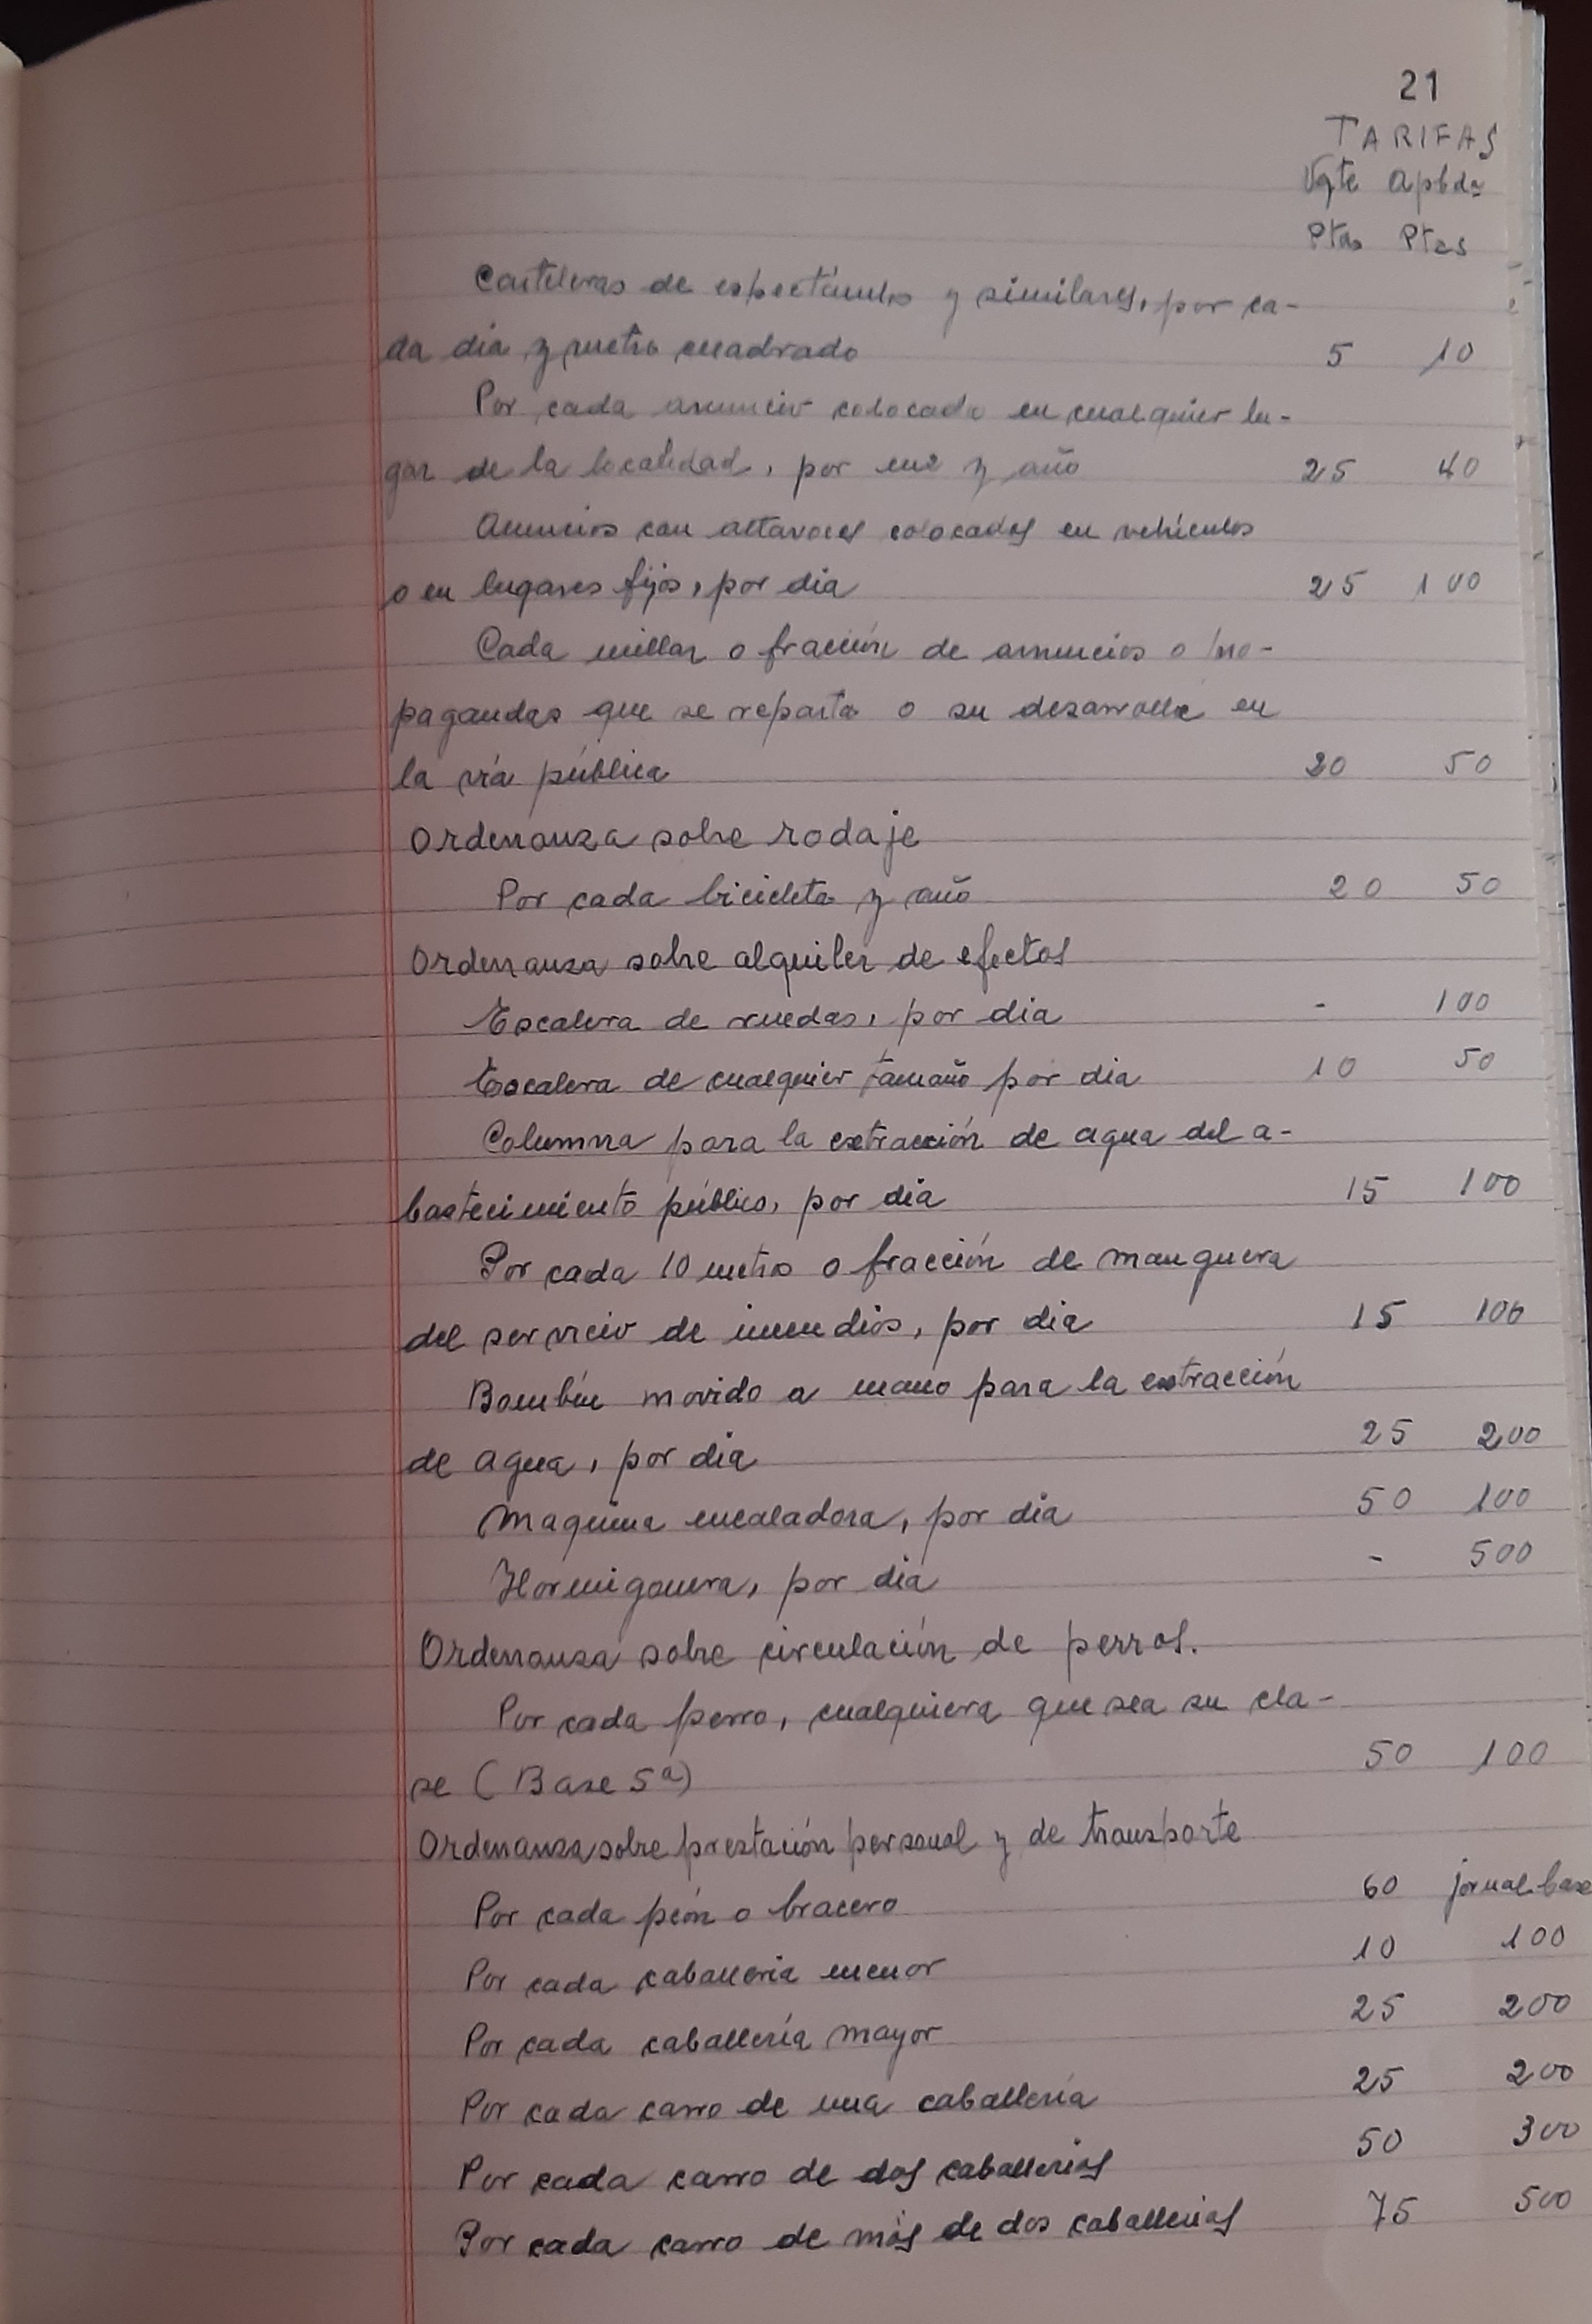 21
TARIFAS
Vgte Apbda
Ptas Ptas
Carteleras de espectáculos y similares, por ca-
da dia y metro cuadrado 5 10
Por cada anuncio colocado en cualquier lu-
gar de la localidad, por m2 y año 25 40
Anuncios con altavoces colocados en vehículos
o en lugares fijos, por dia 25 100
Cada millar o fracción de anuncios o pro-
pagandas que se reparta o su desarrolle en
la vía pública 20 50
Ordenanza sobre rodaje
Por cada bicicleta y año 20 50
Ordenanza sobre alquiler de efectos
Escalera de ruedas, por dia - 100
Escalera de cualquier tamaño por dia 10 50
Columna para la extracción de agua del a-
bastecimiento público, por dia 15 100
Por cada 10 metros o fracción de manguera
del servicio de incendios, por dia 15 100
Bombín movido a mano para la extracción
de agua, por dia 25 200
Maquina encaladora, por dia 50 100
Hormigonera, por dia - 500
Ordenanza sobre circulación de perros.
Por cada perro, cualquiera que sea su cla-
se (Base 5ª) 50 100
Ordenanza sobre prestación personal y de transporte
Por cada peón o bracero 60 jornal base
Por cada caballeria menor 10 100
Por cada caballería mayor 25 200
Por cada carro de una caballería 25 200
Por cada carro de dos caballerias 50 300
Por cada carro de más de dos caballerias 75 500